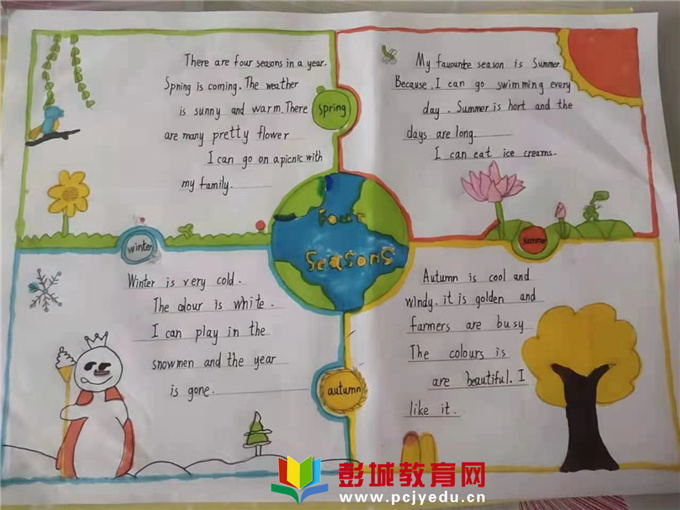 There are four seasons in a year.
Spring is coming. The weather
is sunny and warm. There
are many pretty flower
I can go on a picnic with
my family.
spring
My favourite season is Summer.
Because. I can go swimming every
day. Summer is hort and the
days are long.
I can eat ice creams.
summer
Four
Seasons
winter
Winter is very cold.
The olour is white.
I can play in the
snowmen and the year
is gone.
autumn
Autumn is cool and
windy. it is golden and
farmers are busy
The colours is
are beautiful. I
like it.
彭城教育网
www.pcjyedu.cn